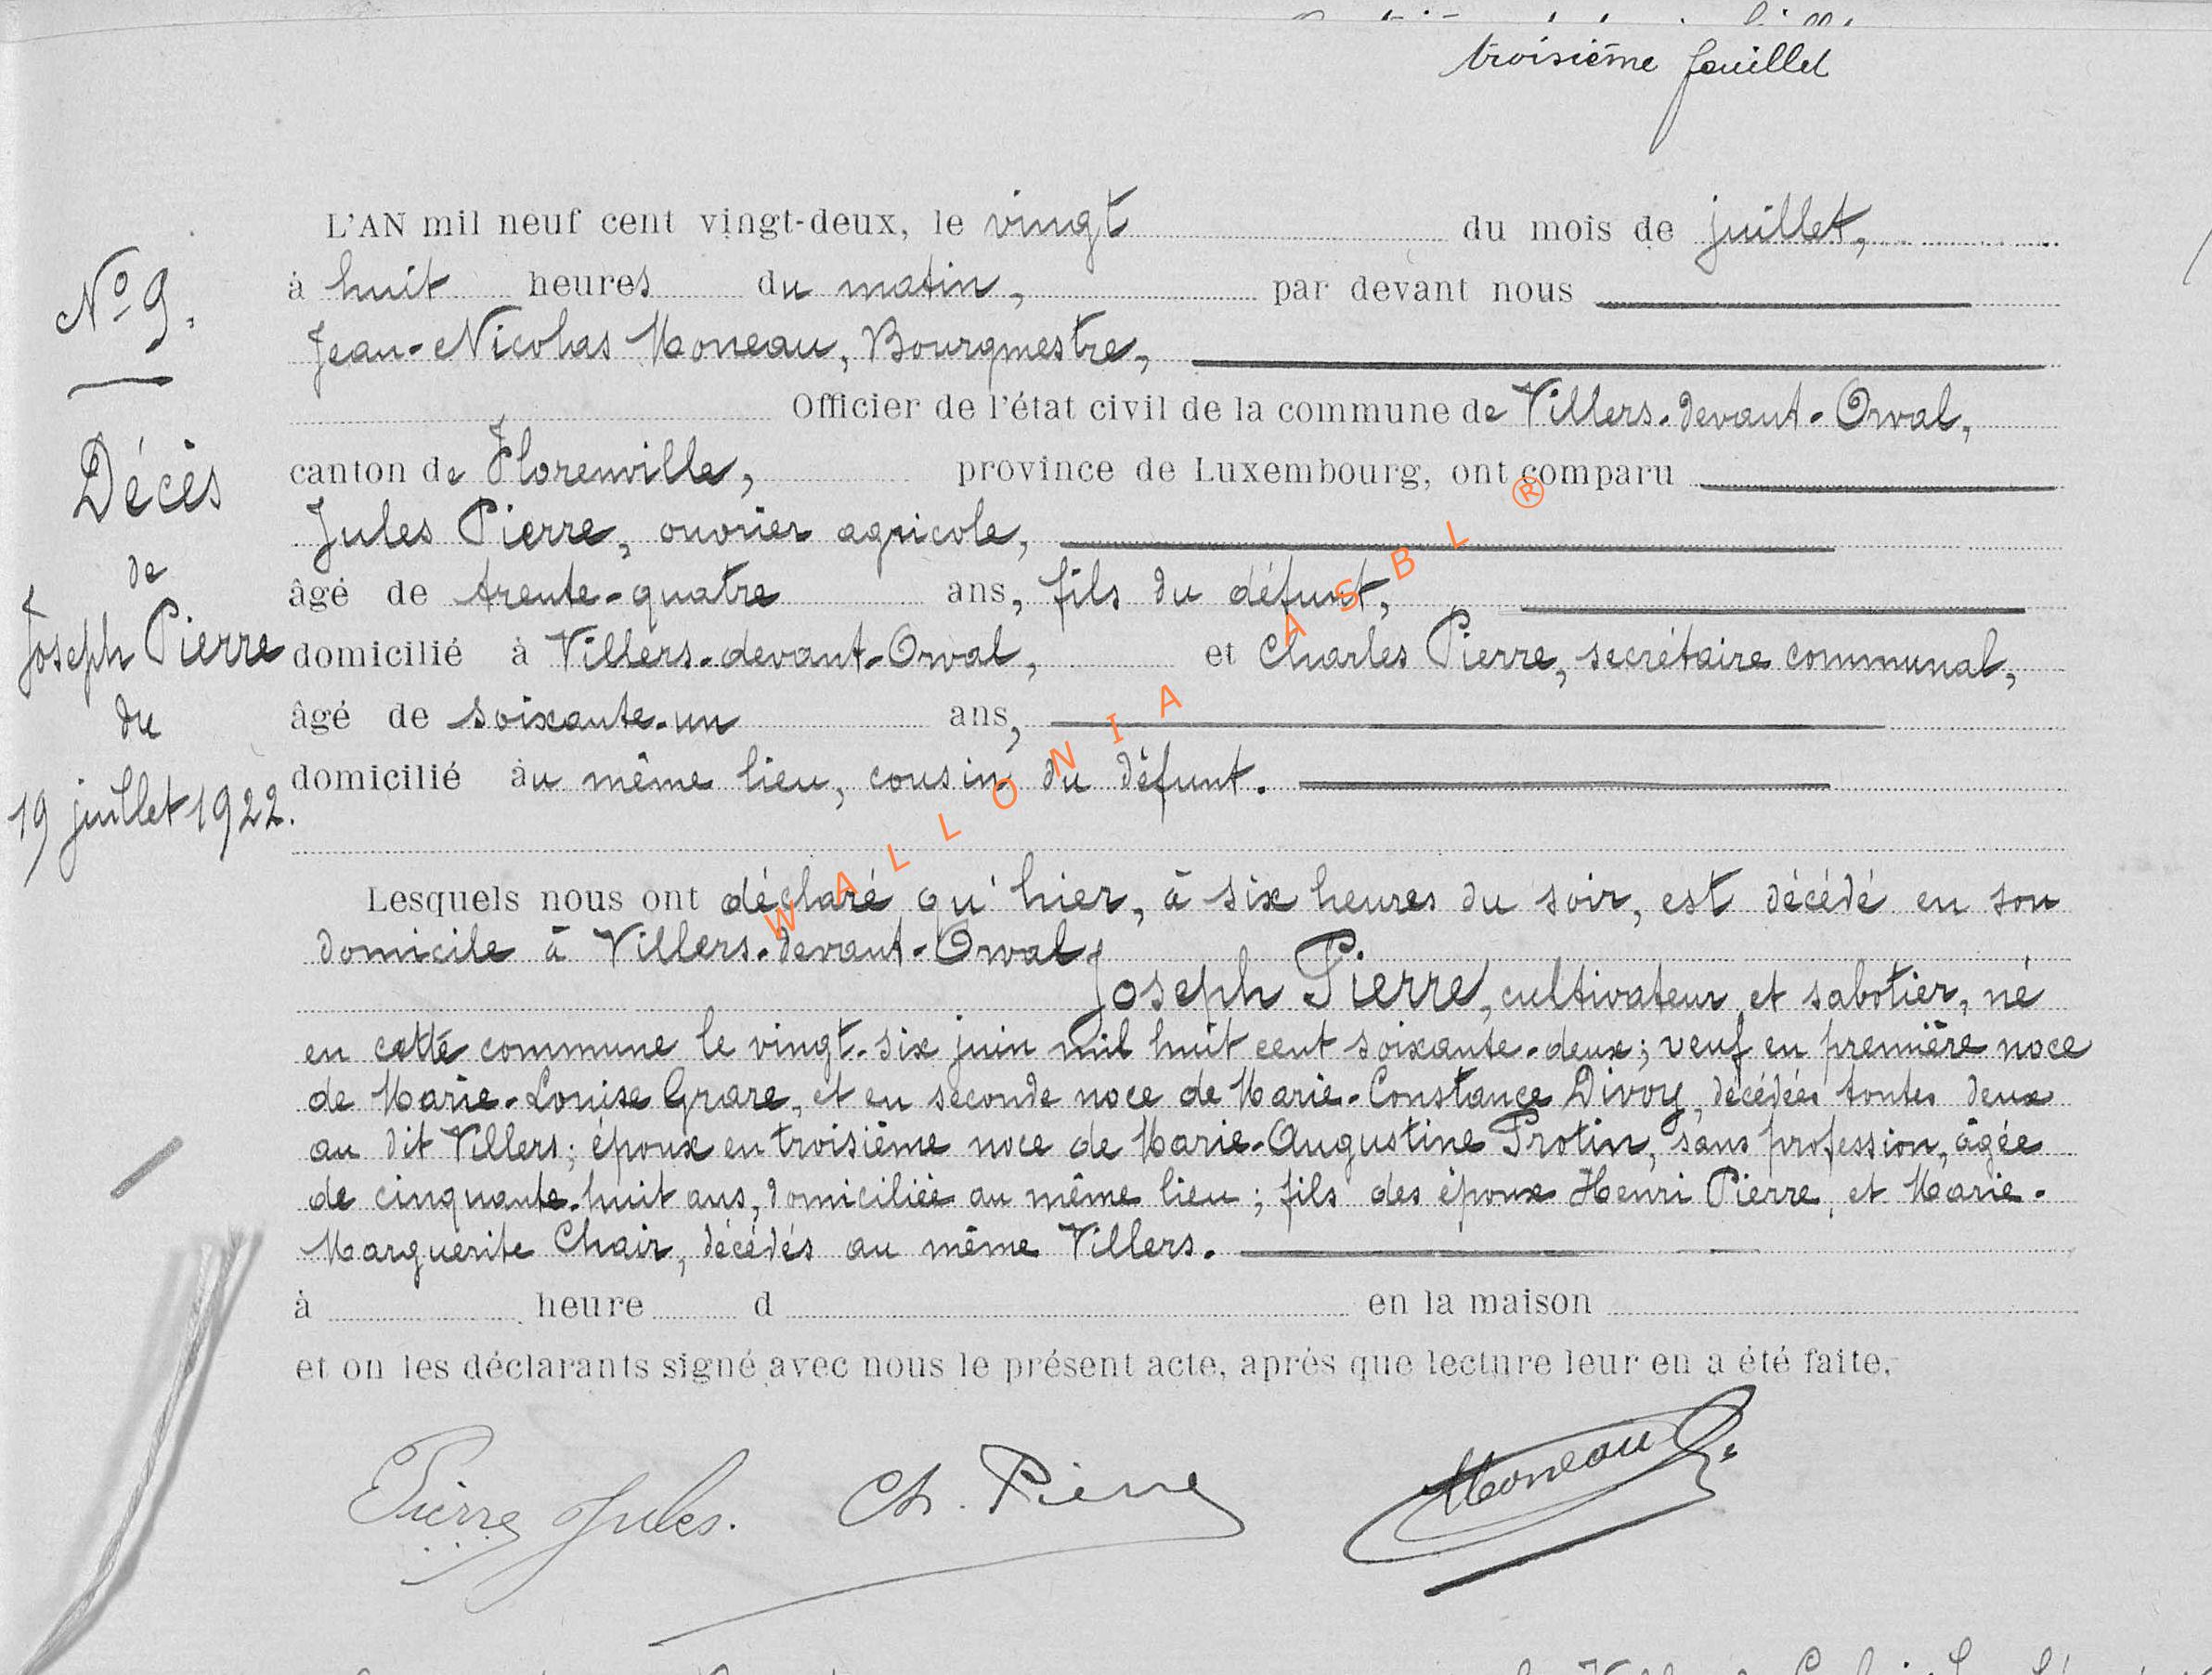 troisième feuillet
L'AN mil neuf cent vingt-deux, le vingt du mois de juillet,
à huit heures du matin, par devant nous
Jean-Nicolas Moneau, Bourgmestre,
Officier de l'état civil de la commune de Villers-devant-Orval,
canton de Florenville, province de Luxembourg, ont comparu
Jules Pierre, ouvrier agricole,
âgé de trente-quatre ans, fils du défunt,
domicilié à Villers-devant-Orval, et Charles Pierre, secrétaire communal,
âgé de soixante-un ans,
domicilié au même lieu, cousin du défunt.
Lesquels nous ont déclaré qu'hier, à six heures du soir, est décédé en son
domicile à Villers-devant-Orval,
Joseph Pierre, cultivateur et sabotier, né
en cette commune le vingt-six juin mil huit cent soixante-deux; veuf en première noce
de Marie-Louise Grare, et en seconde noce de Marie-Constance Divoy, décédées toutes deux
au dit Villers; époux en troisième noce de Marie-Augustine Protin, sans profession, âgée
de cinquante-huit ans, domiciliée au même lieu; fils des époux Henri Pierre, et Marie-
Marguerite Chair, décédés au même Villers.
à heure d en la maison
et on les déclarants signé avec nous le présent acte, après que lecture leur en a été faite.
Pierre Jules. Ch. Pierre Moneau
No 9.
Décès
de
Joseph Pierre
du
19 juillet 1922.
WALLONIA ASBL ®